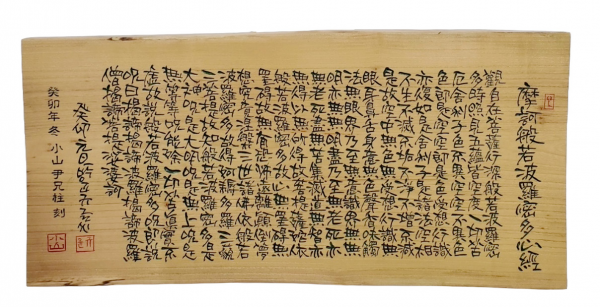 摩訶般若波羅蜜多心經
觀自在菩薩行深般若波羅蜜
多時照見五蘊皆空度一切苦
厄舍利子色不異空空不異色
色卽是空空卽是色受想行識
亦復如是舍利子是諸法空相
不生不滅不垢不淨不增不減
是故空中無色無受想行識無
眼耳鼻舌身意無色聲香味觸
法無眼界乃至無意識界無無
明亦無無明盡乃至無老死亦
無老死盡無苦集滅道無智亦
無得以無所得故菩提薩埵依
般若波羅蜜多故心無罣礙無
罣礙故無有恐怖遠離顚倒夢
想究竟涅槃三世諸佛依般若
波羅蜜多故得阿耨多羅三藐
三菩提故知般若波羅蜜多是
大神呪是大明呪是無上呪是
無等等呪能除一切苦眞實不
虛故說般若波羅蜜多呪卽說
呪曰揭諦揭諦波羅揭諦波羅
僧揭諦菩提娑婆訶
癸卯元旦
癸卯年 冬 小山 尹兄柱 刻